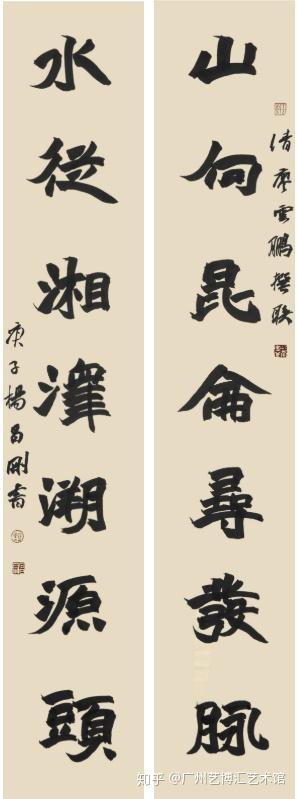 山向昆侖尋發脉
清廖雲鵬撰联
水從湘澤溯源頭
庚子楊昌剛書
知乎 @广州艺博汇艺术馆